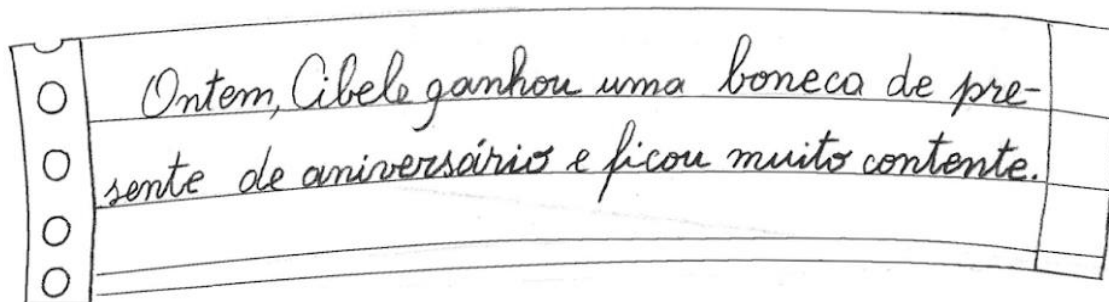 Ontem, Cibele ganhou uma boneca de pre-
sente de aniversário e ficou muito contente.